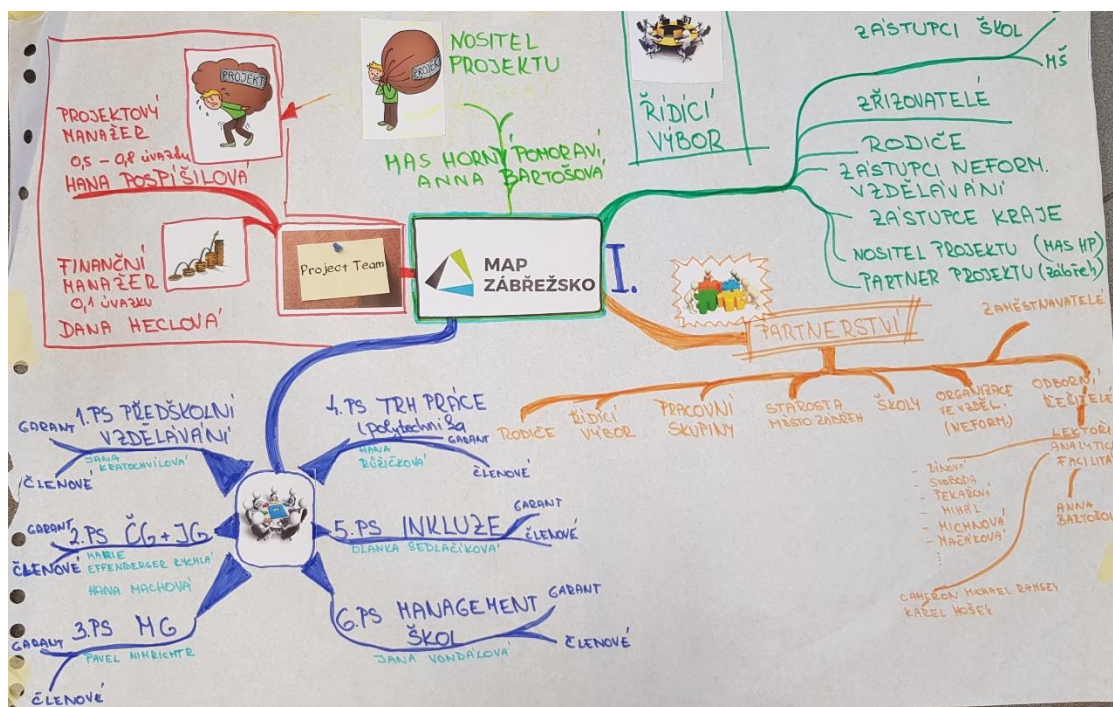 PROJEKT
PROJEKTOVÝ
MANAŽER
0,5 - 0,8 úvazku
HANA POSPÍŠILOVÁ
FINANČNÍ
MANAŽER
0,1 úvazku
DANA HECLOVÁ
Project Team
NOSITEL
PROJEKTU
PROJEKT
MAS HORNÍ POMORAVÍ
ANNA BARTOŠOVÁ
MAP
ZÁBŘEŽSKO
I.
ŘÍDÍCÍ
VÝBOR
ZÁSTUPCI ŠKOL
MŠ
ZŘIZOVATELÉ
RODIČE
ZÁSTUPCI NEFORM.
VZDĚLÁVÁNÍ
ZÁSTUPCE KRAJE
NOSITEL PROJEKTU (MAS HP)
PARTNER PROJEKTU (Zábřeh)
PARTNERSTVÍ
ZAMĚSTNAVATELÉ
RODIČE
ŘÍDÍCÍ
VÝBOR
PRACOVNÍ
SKUPINY
STAROSTA
MĚSTO ZÁBŘEH
ŠKOLY
ORGANIZACE
VE VZDĚL.
(NEFORM)
ODBORNÍ
ŘEŠITELÉ
LEKTOŘI
ANALYTICI
- SVOBODA
- PEKAŘOVÁ
- MICHNOVÁ
- MAČÁKOVÁ
ANNA
CAMERON MICHAEL RAMSEY
KAREL HOŠEK
1.PS PŘEDŠKOLNÍ
VZDĚLÁVÁNÍ
GARANT
JANA
KRATOCHVILOVÁ
ČLENOVÉ
2.PS ČG+JG
GARANT
MARIE
EFFENBERGER RYCHLÁ
HANA MACHOVÁ
ČLENOVÉ
3.PS MG
GARANT
PAVEL NIMRICHTR
ČLENOVÉ
4.PS TRH PRÁCE
(polytechnika
GARANT
HANA
RŮŽIČKOVÁ
ČLENOVÉ
5.PS INKLUZE
GARANT
BLANKA SEDLAČÍKOVÁ
ČLENOVÉ
6.PS MANAGEMENT
ŠKOL
GARANT
JANA VONDÁLOVÁ
ČLENOVÉ